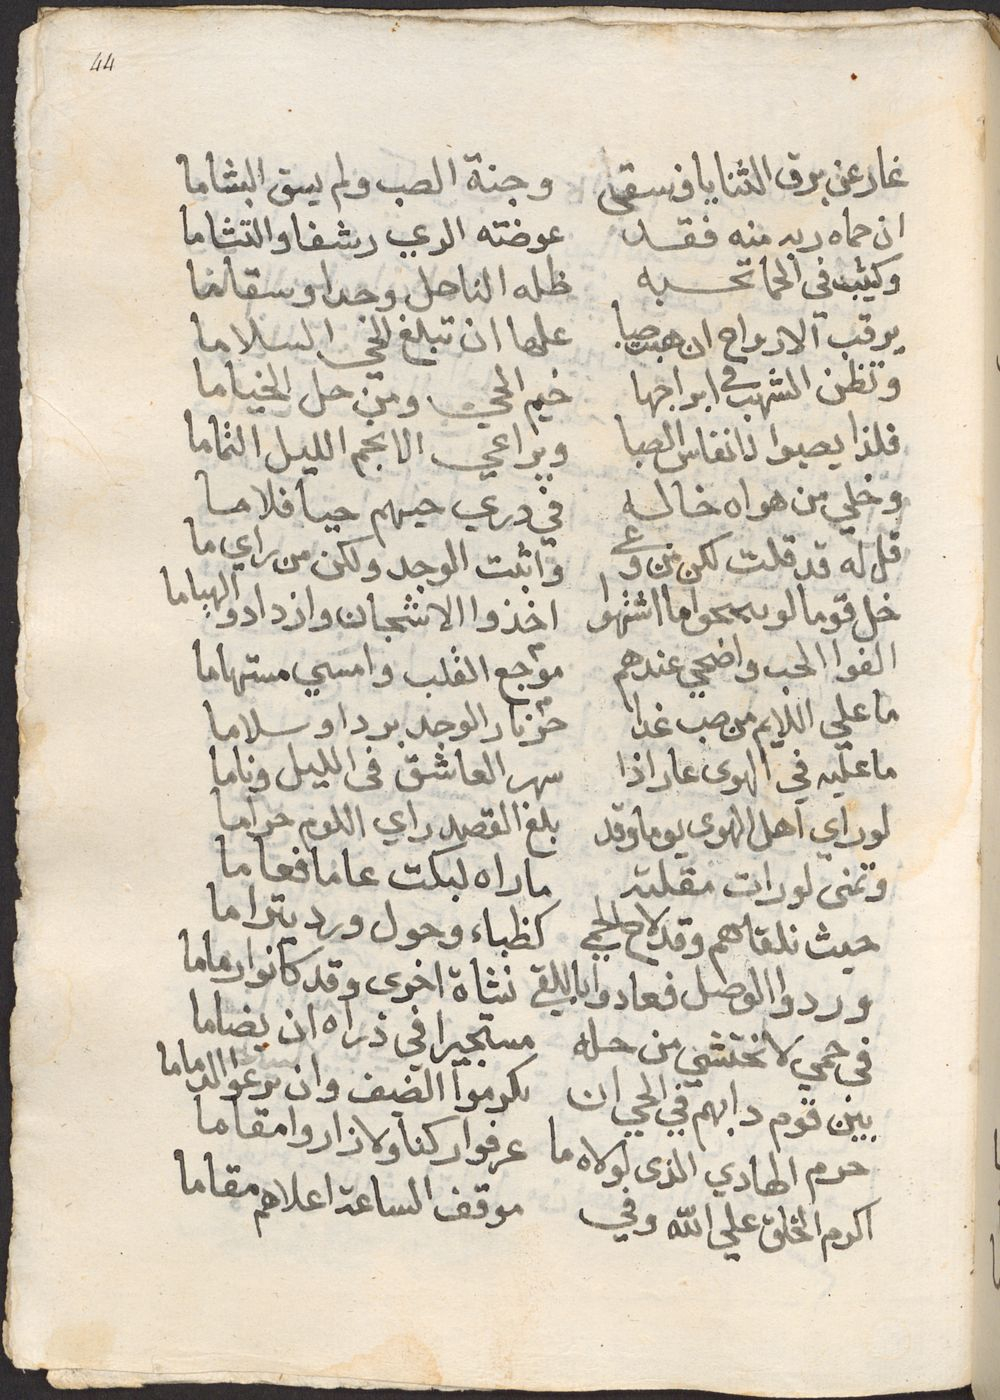 44
غار عن برق الثنايا فسقى وجنة الصب ولم يسق البشاما
ان حماه ربه منه فقد عوضته الري رشفا والتثاما
وكئيب في الحما تحسبه ظله الناحل وجدا وسقاما
يرقب الارواح ان هبت صبا علها ان تبلغ الحي السلاما
وتظن الشهب في ابراجها خيم الحي ومن حل الخياما
فلذا يصبوا لانفاس الصبا ويراعي الانجم الليل التماما
وخلي من هواه خاله في ذري حيهم حيا فلاما
قل له قد قلت لكن من وعى واثبت الوجد ولكن من راي ما
خل قوما لو اما اشتهوا اخذوا الاشجان وازدادوا الهياما
الفوا الحب واضحي عندهم موجع القلب وامسي مستهاما
ما علي اللايم من صب غدا حر نار الوجد بردا وسلاما
ما عليه في الهوى عار اذا سهر العاشق في الليل وناما
لو راي اهل الهوى يوما وقد بلغ القصد راي اللوم حراما
وتمنى لو رات مقلته ما راه لبكت عاما فعاما
حيث نلقاهم وقد لاح الحمي كظباء وحول ورد يتراما
وردوا الوصل فعادوا باللقي نشاة اخرى وقد كانوا رماما
في حمي لا تختشي من حله مستجيرا في ذراه ان يضاما
بين قوم دابهم في الحي ان يكرموا الضيف وان يرعوا الذماما
حرم الهادي الذى لولاه ما عرفوا ركنا ولا زاروا مقاما
اكرم الخلق علي الله وفي موقف الساعة اعلاهم مقاما